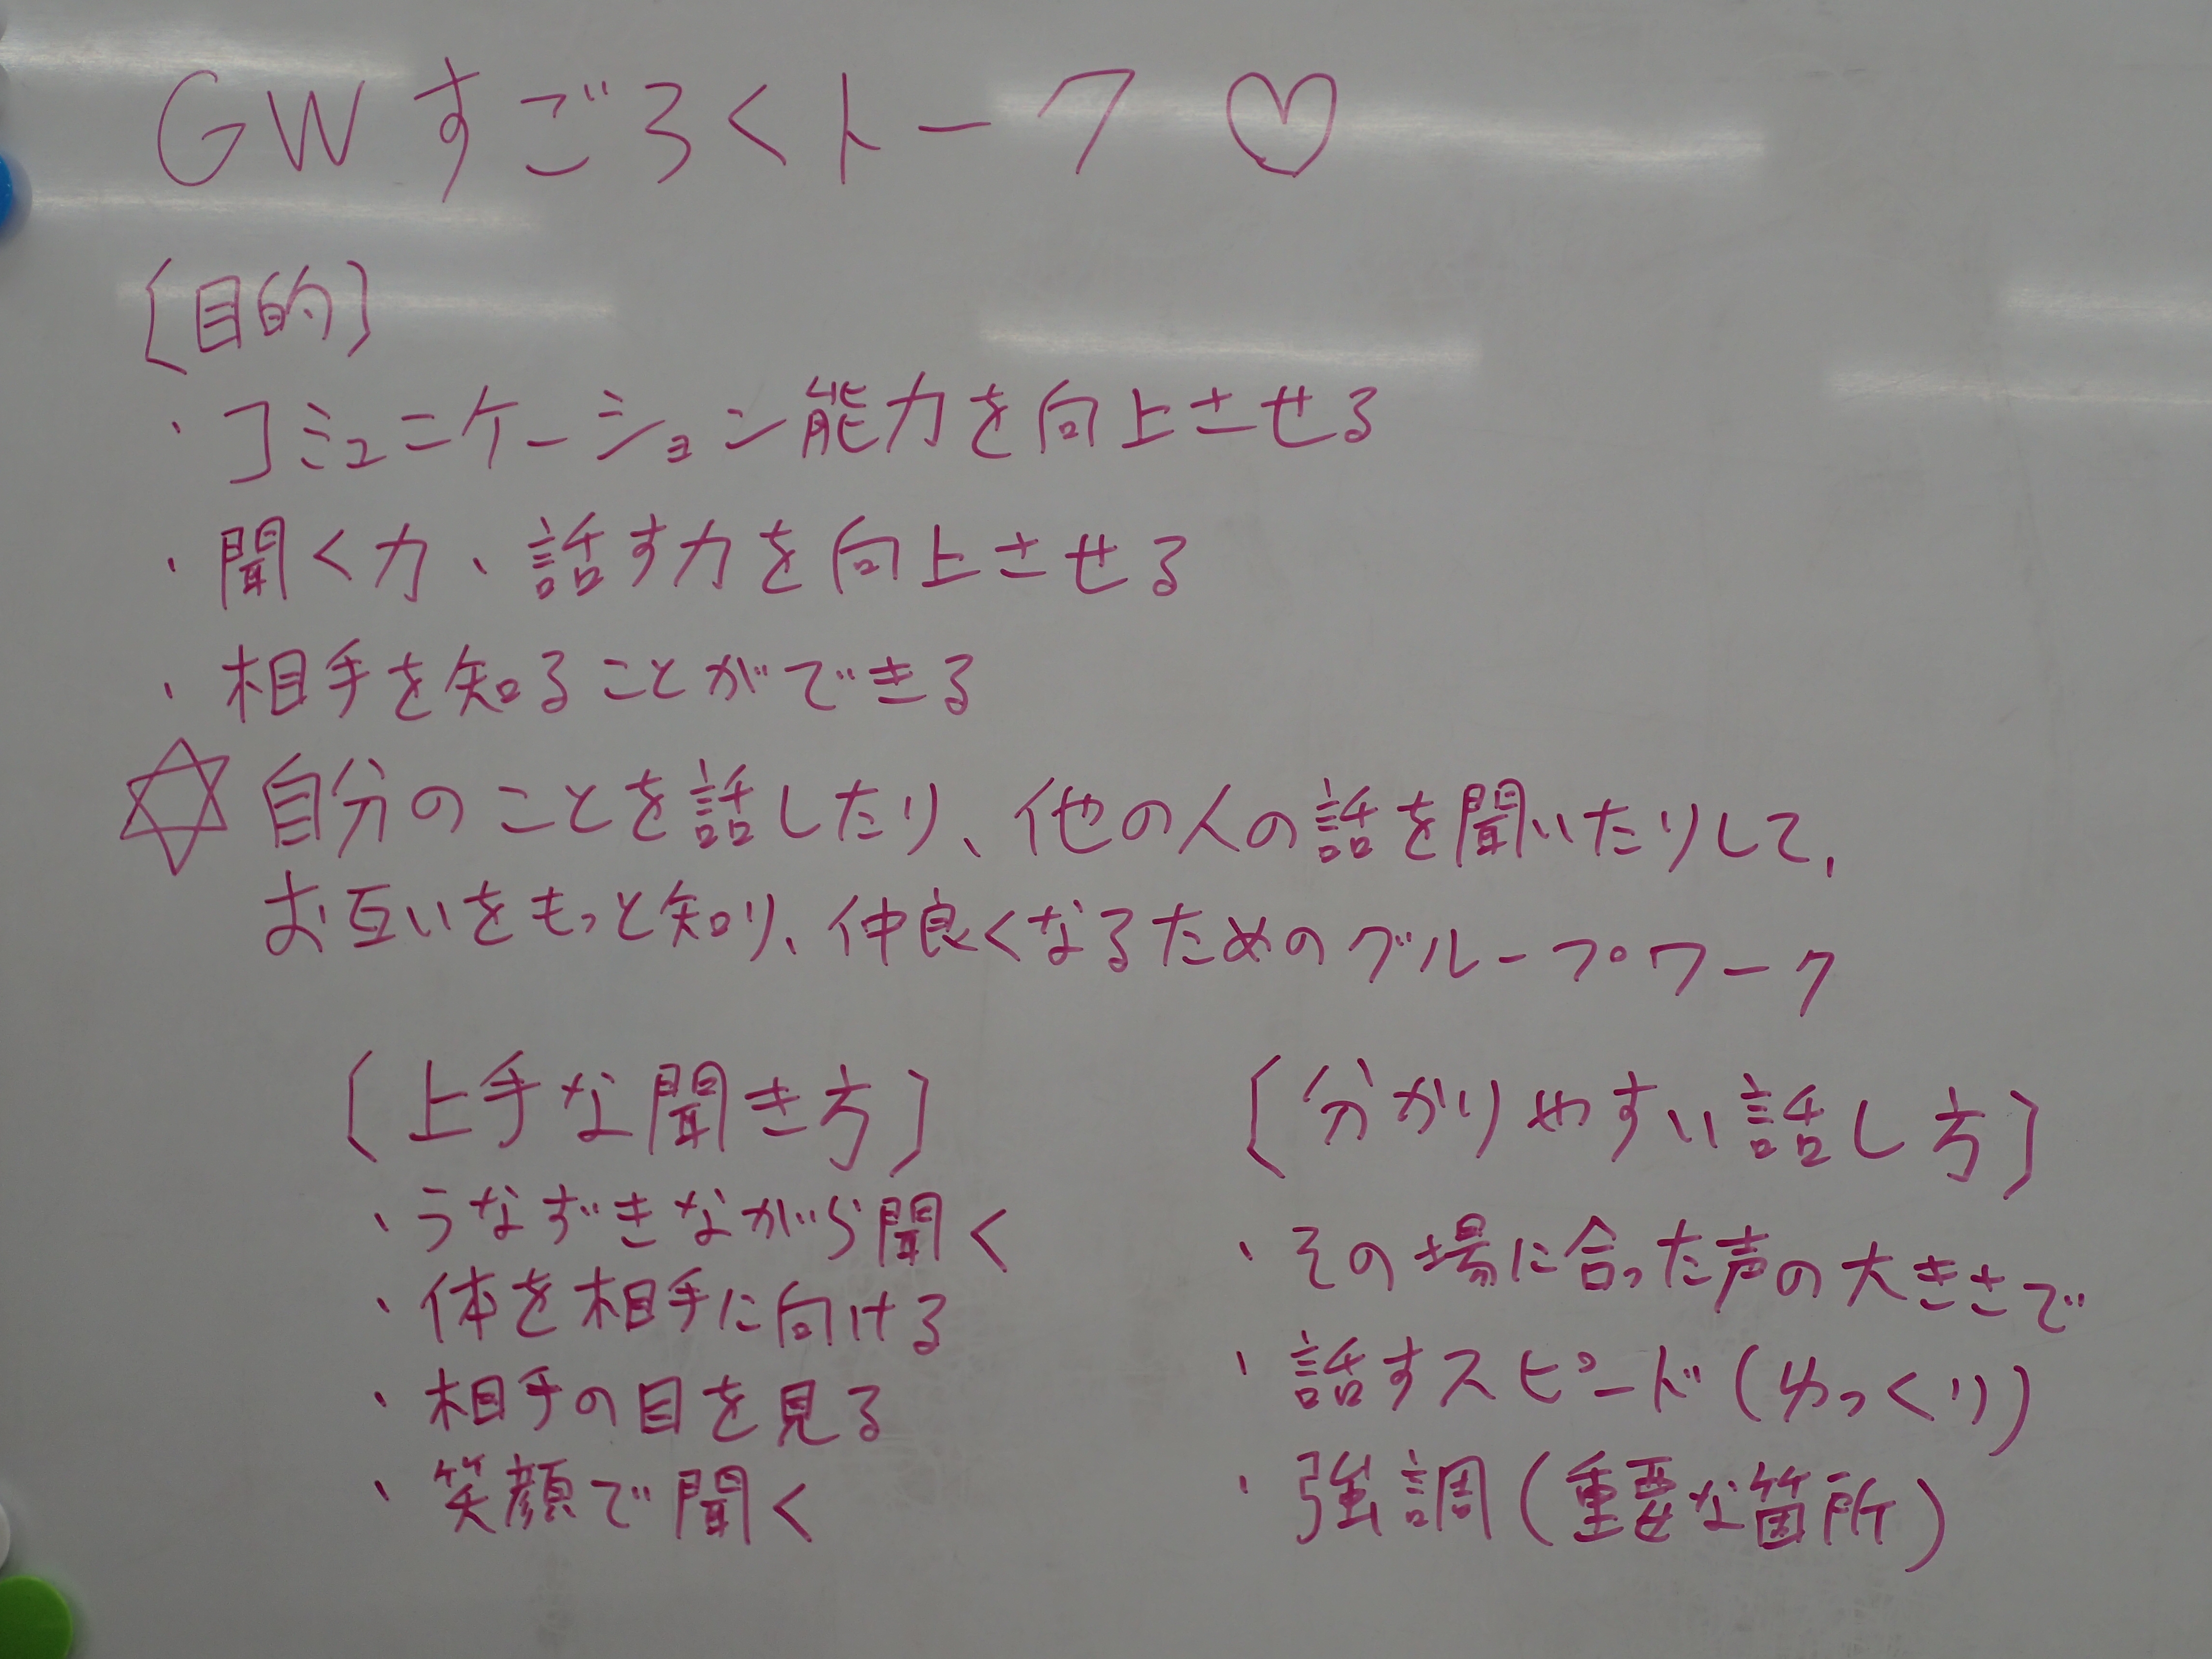 GWすごろくトーク♡
〔目的〕
・コミュニケーション能力を向上させる
・聞く力、話す力を向上させる
・相手を知ることができる
✡自分のことを話したり、他の人の話を聞いたりして、
お互いをもっと知り、仲良くなるためのグループワーク
〔上手な聞き方〕
・うなずきながら聞く
・体を相手に向ける
・相手の目を見る
・笑顔で聞く
〔分かりやすい話し方〕
・その場に合った声の大きさで
・話すスピード(ゆっくり)
・強調(重要な箇所)